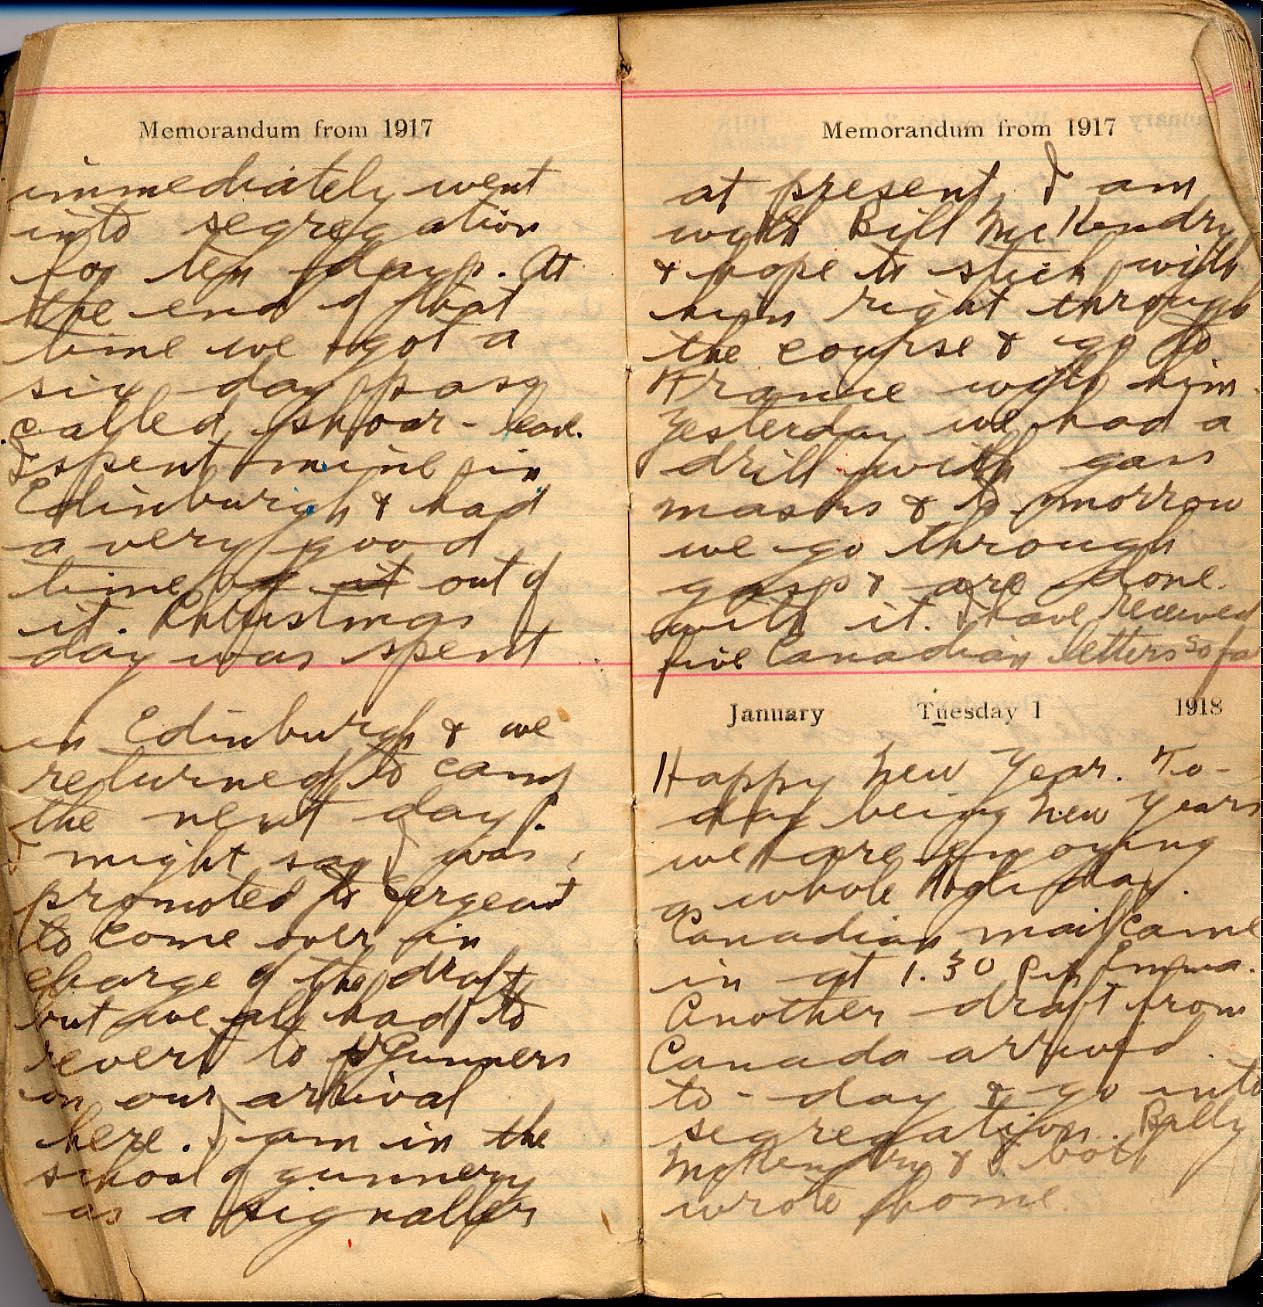 Memorandum from 1917
immediately went
into segregation
for ten days. At
the end of that
time we got a
six day pass
called leave.
I spent mine in
Edinburgh & had
a very good
time of it out of
it. Christmas
day was spent
in Edinburgh & we
returned to camp
the next day.
I might say I was
promoted to Sergeant
to come over in
charge of the draft
but we all had to
revert to Gunners
on our arrival
here. I am in the
school of gunnery
as a signaller
Memorandum from 1917
at present, I am
with Bill McKendry
& hope to stick with
him right through
the course & go to
France with him.
Yesterday we had a
drill with gass
masks & to-morrow
we go through
gass & are done
with it. I have received
five Canadian letters so far
January Tuesday 1 1918
Happy New Year. To-
day being New Years
we are enjoying
a whole holiday.
Canadian mail came
in at 1.30 Emma.
Another draft from
Canada arrived
to-day & go into
segregation. Billy
McKendry & I both
wrote home.